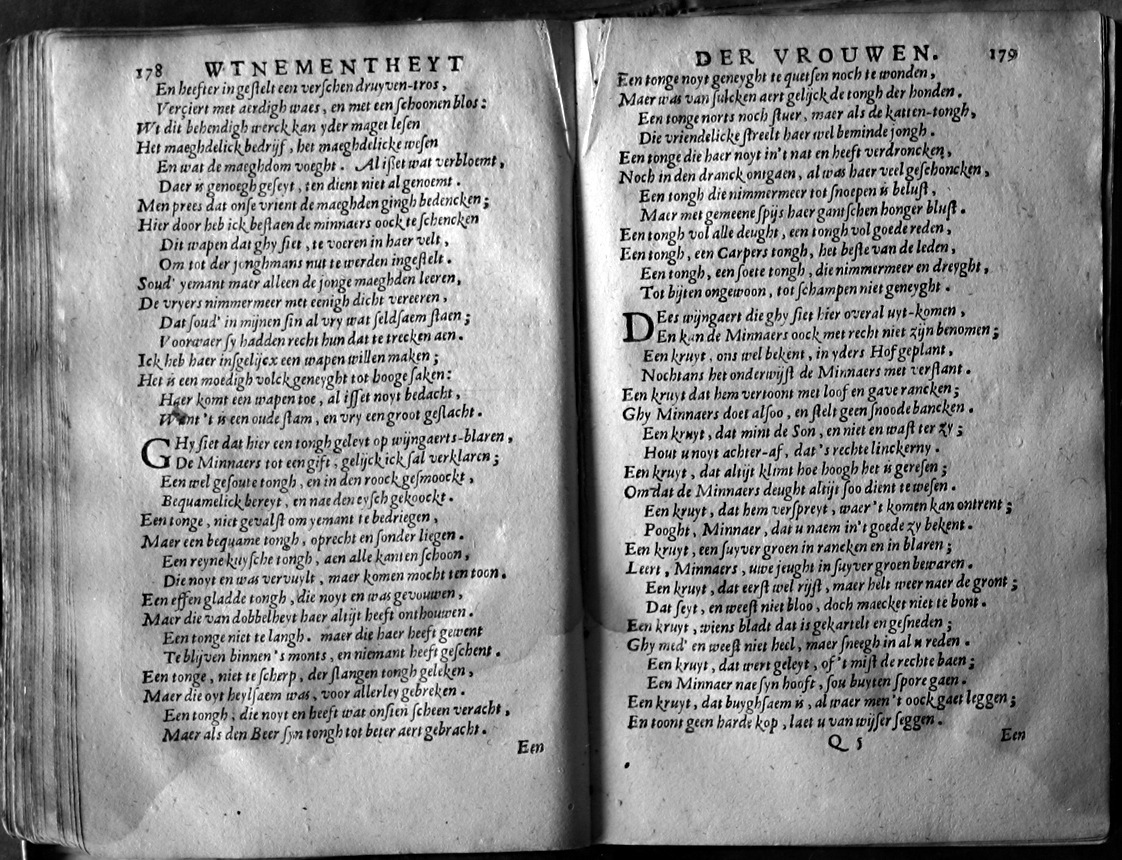 178 WTNEMENTHEYT
En heefter in gestelt een verschen druyven-tros,
Verçiert met aerdigh waes, en met een schoonen blos:
Wt dit behendigh werck kan yder maget lesen
Het maeghdelick bedrijf, het maeghdelicke wesen
En wat de maeghdom voeght. Al isset wat verbloemt,
Daer is genoegh geseyt, ten dient niet al genoemt.
Men prees dat onse vrient de maeghden gingh bedencken;
Hier door heb ick bestaen de minnaers oock te schencken
Dit wapen dat ghy siet, te voeren in haer velt,
Om tot der jonghmans nut te werden ingestelt.
Soud' yemant maer alleen de jonge maeghden leeren,
De vryers nimmermeer met eenigh dicht vereeren,
Dat soud' in mijnen sin al vry wat seldsaem staen;
Voorwaer sy hadden recht hun dat te trecken aen.
Ick heb haer insgelijcx een wapen willen maken;
Het is een moedigh volck geneyght tot hooge saken:
Haer komt een wapen toe, al isset noyt bedacht,
Want 't is een oude stam, en vry een groot geslacht.
GHy siet dat hier een tongh geleyt op wijngaerts-blaren,
De Minnaers tot een gift, gelijck ick sal verklaren;
Een wel gesoute tongh, en in den roock gesmoockt,
Bequamelick bereyt, en nae den eysch gekoockt.
Een tonge, niet gevalst om yemant te bedriegen,
Maer een bequame tongh, oprecht en sonder liegen.
Een reyne kuysche tongh, aen alle kanten schoon,
Die noyt en was vervuylt, maer komen mocht ten toon.
Een effen gladde tongh, die noyt en was gevouwen,
Maer die van dobbelheyt haer altijt heeft onthouwen.
Een tonge niet te langh. maer die haer heeft gewent
Te blijven binnen 's monts, en niemant heeft geschent.
Een tonge, niet te scherp, der slangen tongh geleken,
Maer die oyt heylsaem was, voor allerley gebreken.
Een tongh, die noyt en heeft wat onsien scheen veracht,
Maer als den Beer syn tongh tot beter aert gebracht.
Een
DER VROUWEN. 179
Een tonge noyt geneyght te quetsen noch te wonden,
Maer was van sulcken aert gelijck de tongh der honden.
Een tonge norts noch stuer, maer als de katten-tongh,
Die vriendelicke streelt haer wel beminde jongh.
Een tonge die haer noyt in't nat en heeft verdroncken,
Noch in den dranck ontgaen, al was haer veel geschoncken,
Een tongh die nimmermeer tot snoepen is belust,
Maer met gemeene spijs haer gantschen honger blust.
Een tongh vol alle deught, een tongh vol goede reden,
Een tongh, een Carpers tongh, het beste van de leden,
Een tongh, een soete tongh, die nimmermeer en dreyght,
Tot bijten ongewoon, tot schampen niet geneyght.
DEes wijngaert die ghy siet hier overal uyt-komen,
En kan de Minnaers oock met recht niet zijn benomen;
Een kruyt, ons wel bekent, in yders Hof geplant,
Nochtans het onderwijst de Minnaers met verstant.
Een kruyt dat hem vertoont met loof en gave rancken;
Ghy Minnaers doet alsoo, en stelt geen snoode bancken.
Een kruyt, dat mint de Son, en niet en wast ter zy;
Hout u noyt achter-af, dat's rechte linckerny.
Een kruyt, dat altijt klimt hoe hoogh het is geresen;
Om dat de Minnaers deught altijt soo dient te wesen.
Een kruyt, dat hem verspreyt, waer't komen kan ontrent;
Pooght, Minnaer, dat u naem in't goede zy bekent.
Een kruyt, een suyver groen in rancken en in blaren;
Leert, Minnaers, uwe jeught in suyver groen bewaren.
Een kruyt, dat eerst wel rijst, maer helt weer naer de gront;
Dat seyt, en weest niet bloo, doch maecket niet te bont.
Een kruyt, wiens bladt dat is gekartelt en gesneden;
Ghy med' en weest niet heel, maer sneegh in al u reden.
Een kruyt, dat wert geleyt, of't mist de rechte baen;
Een Minnaer nae syn hooft, sou buyten spore gaen.
Een kruyt, dat buyghsaem is, al waer men't oock gaet leggen;
En toont geen harde kop, laet u van wijser seggen.
Q 5
Een